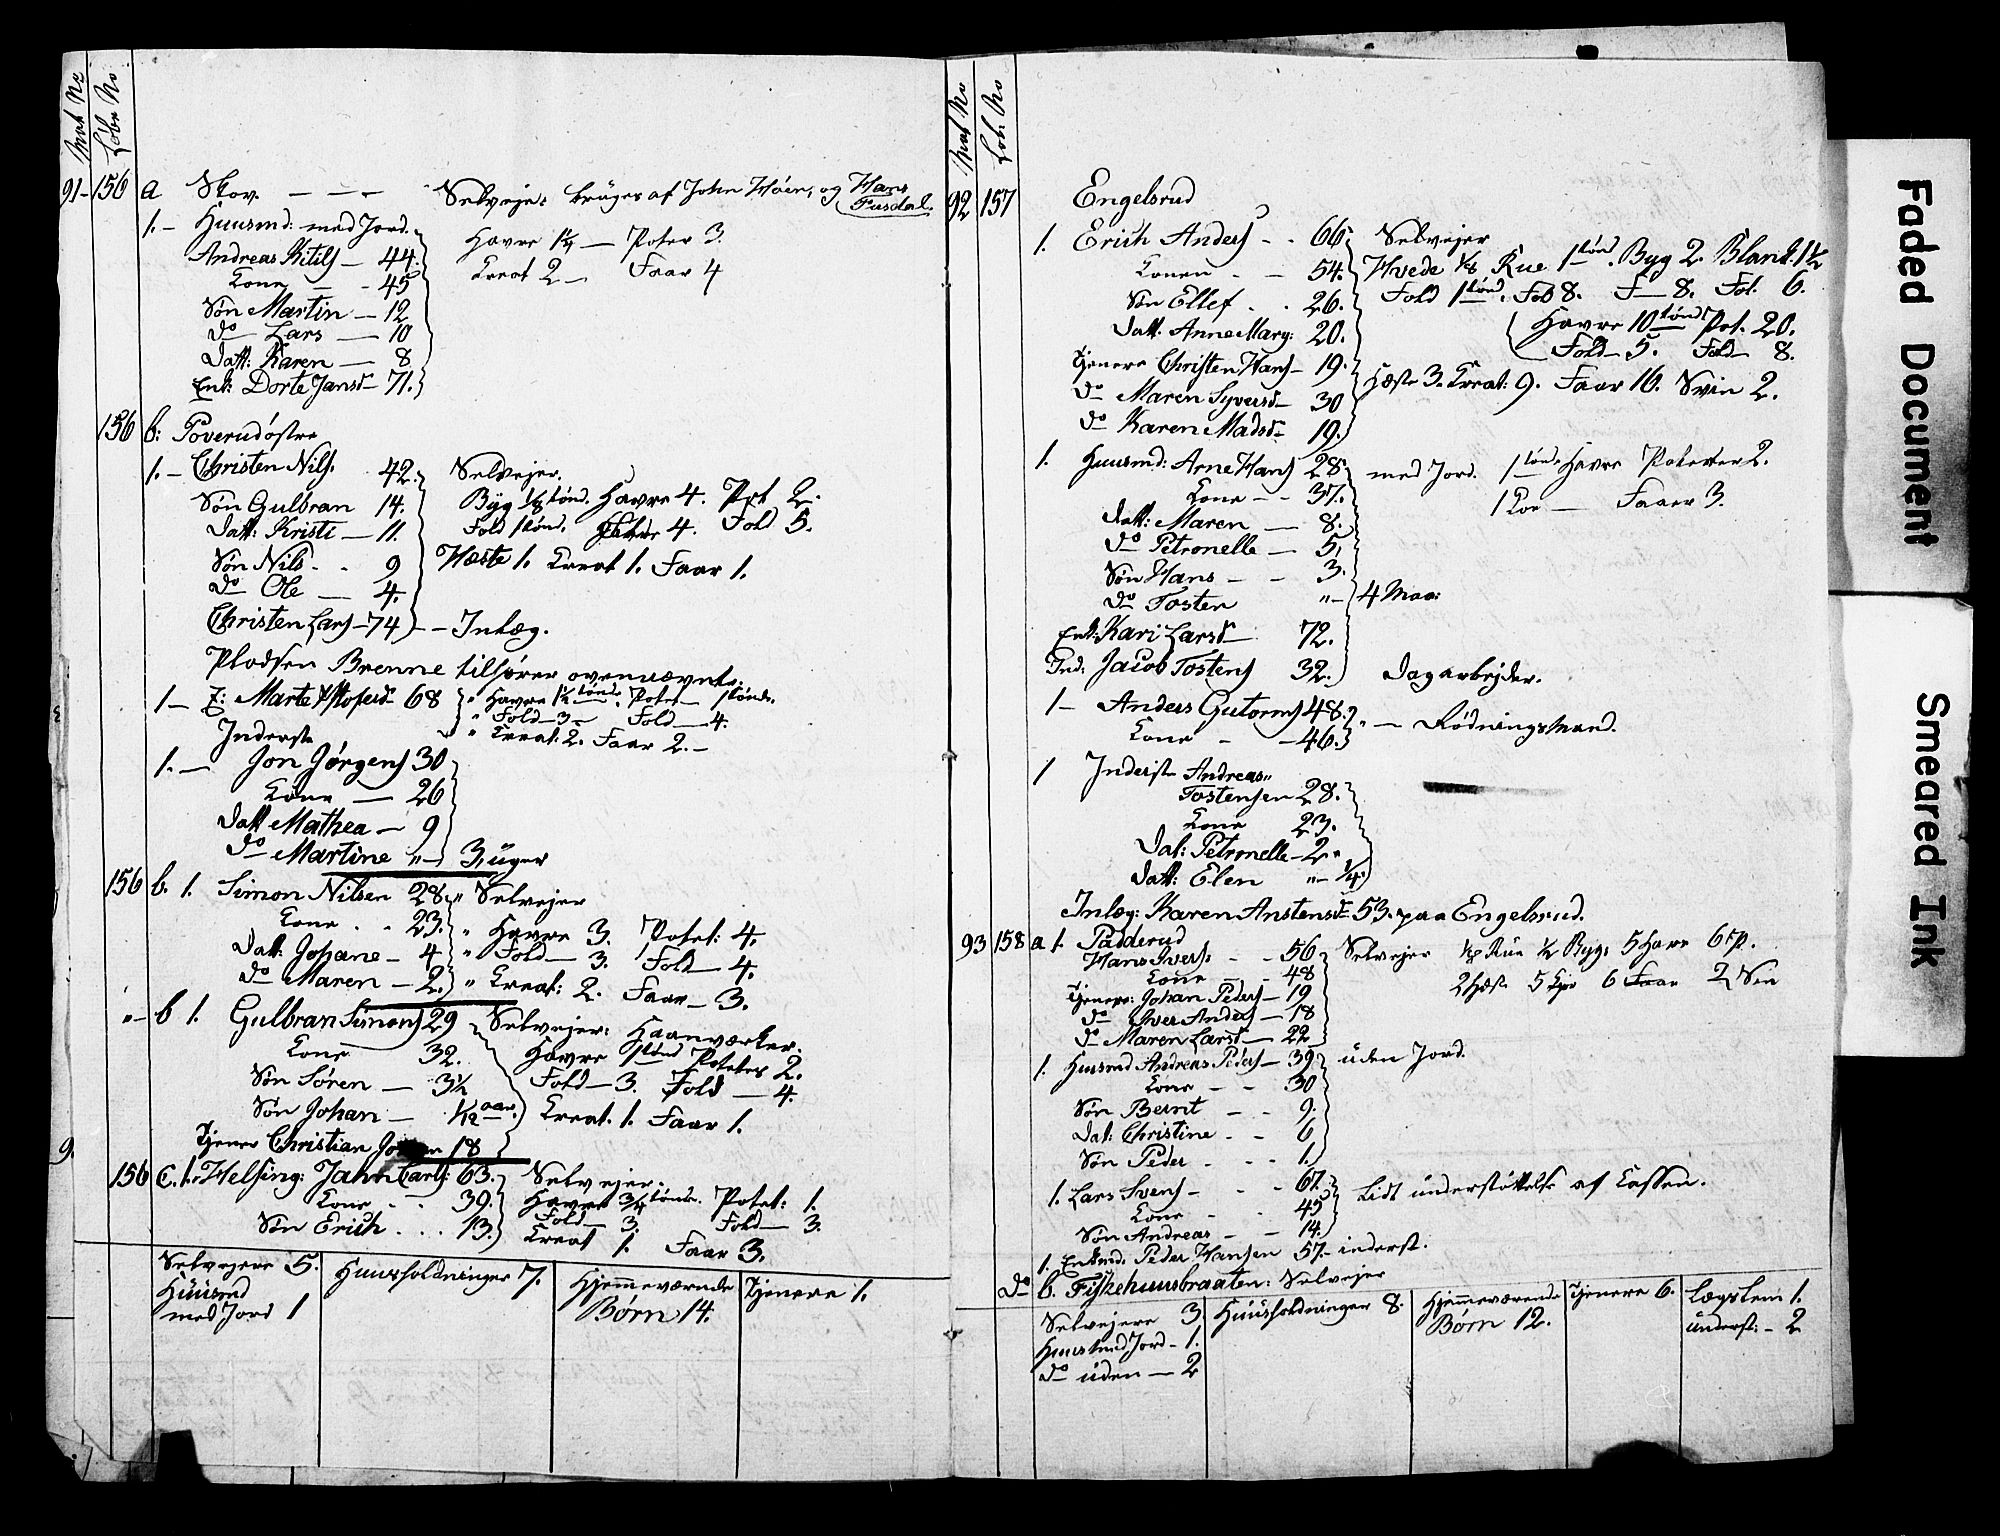 Mat No
Løbe No
91- 156 a Skov. — — — Selvejer bruges af John Høier, og Hans Fusdal.
1.- Huusmd: med Jord.
Havre 1¼ — Poter 3.
Andreas Kitils — 44.
Creat 2 — Faar 4
Kone — 45
Søn Martin — 12
do Lars — 10
Datt: Karen — 8
Enk: Dorte Jansd — 71.
156 b: Poverud østre
1.- Christen Nils. 42. Selvejer.
Søn Gulbran 14. Byg 1/8 tønd. Havre 4. Pot 2.
Datt: Kristi — 11. Fold 1 tønd. 4. Fold 5.
Søn Nils. . 9 Hæste 1. Creat 1. Faar 1.
do Ole — 4.
Christen Lars — 74 — Inlæg.
Pladsen Brenne tilhører ovennævnte.
1 — E: Marte 68 " Havre 1½ tønde. Potet — 1 tønde.
" Fold — 3 — Fold — 4.
Inderst " Creat: 2. Faar 2. —
1. — Jon Jørgens 30
Kone — 26
Datt Mathea — 9
do Martine " — 3 uger
156 b. 1. Simon Nilsen 28. " Selvejer
Kone . . 23. " Havre 3. Potet: 4.
Datt: Johane — 4 " Fold — 3. Fold — 4.
do Maren — 2. " Creat: 2. Faar — 3.
"- b 1. Gulbran Simons 29 Selvejer: Haanværker.
Kone 32. Havre 1 tønd Poteter 2.
Søn Søren — 3½ Fold — 3. Fold — 4.
Søn Johan — 1/12 aar. Creat. 1. Faar 1.
Tjener Christian 18
156 c. 1. Helsing: Jahn Carls: 63. Selvejer.
Kone . . 39. Havre 3/4 tønde. Potet: 1.
Fold — 3. Fold — 3.
Søn Erich . . . 13. Creat 1. Faar 3.
Selvejere 5. Huusholdninger 7. Hjemmeværende Børn 14. Tjenere 1.
Huusmd med Jord 1
Mat No
Løb. No
92 157 Engelsrud
1. Erich Anders - . 66 Selvejer
Konen - - 54. Hvede 1/8 Rue 1 tønd. Byg 2. Bland. 1½
Søn Ellef . . 26. Fold 1 tønd. Fol 8. F — 8. Fol. 6.
Datt: Anne Marg: 20. Havre 10 tønd Pot. 20.
Fold — 5. Fold — 8.
Tjenere Christen Hans — 19. Hæste 3. Creat: 9. Faar 16. Svin 2.
do Maren Syversd — 30
do Karen Madsd — 19.
1. Huusmd: Arne Hans 28 med Jord. 1 tønd. Havre Poteter 2.
Kone - - 37. 1 Koe — Faaer 3.
Datt: Maren — 8.
do Petronelle — 5,
Søn Hans — - 3.
do Tosten " - 4 Maa:
Enk: Kari Larsd 72.
Ind: Jacob Tostens 32. Dagarbejder.
1 — Anders Gutorms 48. " — Rødningsmand.
Kone - - 46.
1 Inderst Andreas
Tostensen 28.
Kone 23.
Dat: Petronelle — 2 "
Datt: Elen " — ¼
Inlæg: Karen Anstensd 53. paa Engelsrud.
93 158 a 1. Padderud
Hans Ivers. - - 56 Selvejer 1/8 Rue ½ Byg. 5 Havr 6 P.
Kone - - 48 2 Hæst. 5 Kjør 6 Faar 2 Svin
Tjenere: Johan Peders — 19
do Iver Anders — 18
do Maren Larsd — 22
1. Huusmd Andreas Peders — 39 uden Jord.
Kone - - 30
Søn Bernt - - 9.
Dat: Christine - - 6
Søn Peder . - - 1.
1. Lars Svens — - - 67. Lidt understøttelse af Cassen.
Kone - . 45
Søn Andreas - - 14.
1. Enkmd. Peder Hansen 57. - inderst.
do b. Fiskehuusbraaten: Selvejer
Selvejere 3 Huusholdninger 8. Hjemmeværende Børn 12. Tjenere 6. Lægslem 1.
Huusmd Jord - 1. underst: - 2
do uden — 2
Faded Document
Smeared Ink